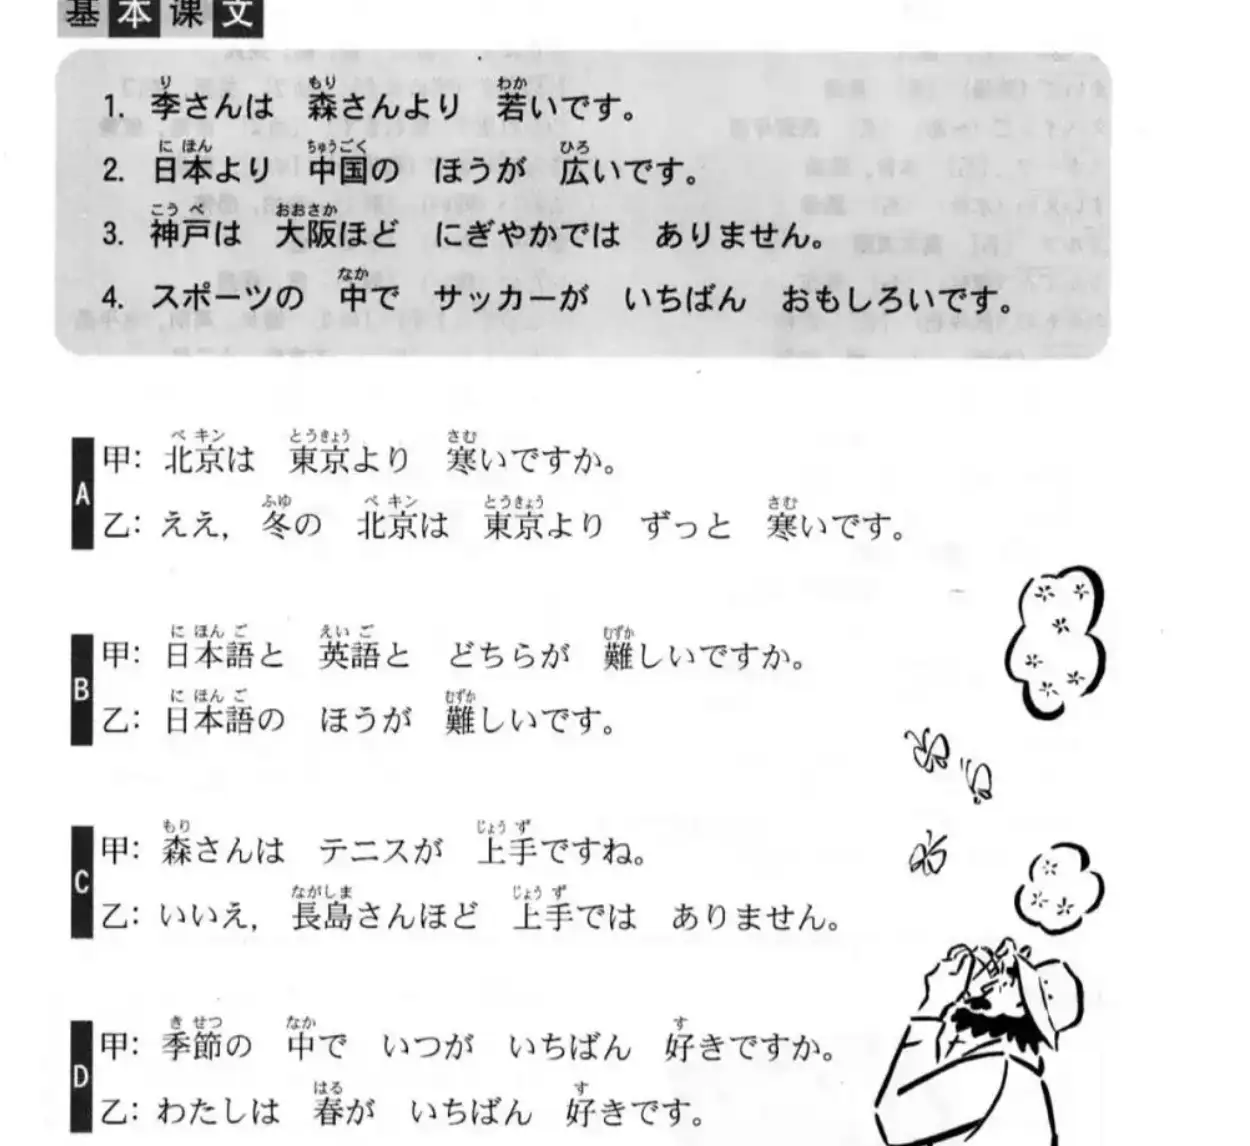 基本课文
1. 李さんは 森さんより 若いです。
2. 日本より 中国の ほうが 広いです。
3. 神戸は 大阪ほど にぎやかでは ありません。
4. スポーツの 中で サッカーが いちばん おもしろいです。
A
甲: 北京は 東京より 寒いですか。
乙: ええ, 冬の 北京は 東京より ずっと 寒いです。
B
甲: 日本語と 英語と どちらが 難しいですか。
乙: 日本語の ほうが 難しいです。
C
甲: 森さんは テニスが 上手ですね。
乙: いいえ, 長島さんほど 上手では ありません。
D
甲: 季節の 中で いつが いちばん 好きですか。
乙: わたしは 春が いちばん 好きです。